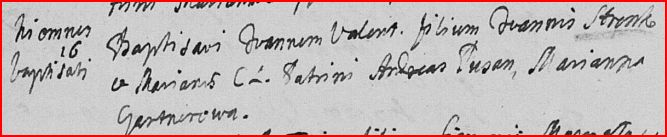 hi omnes
16
baptisati
Baptisavi Joannem Valent. filium Joannis Stronk
et Mariannis C. L. Patrini Andreas Pusan, Marianna
Gartnerowa.